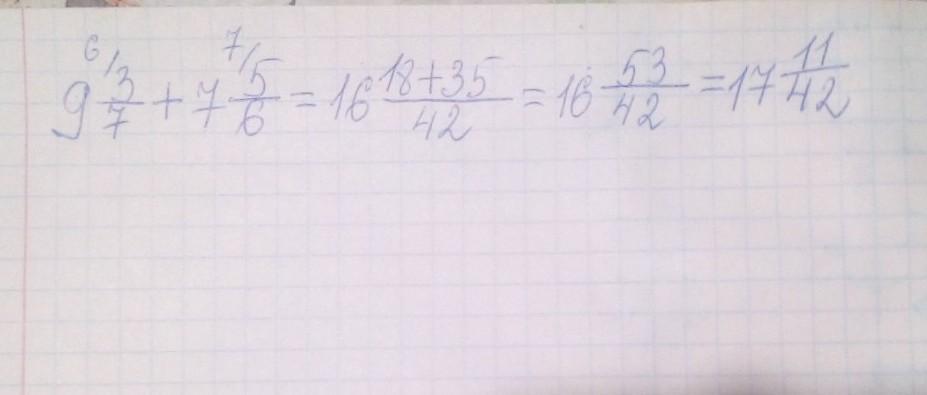 9 ⁶⁄3/7 + 7 ⁷⁄5/6 = 16 (18+35)/42 = 16 53/42 = 17 11/42